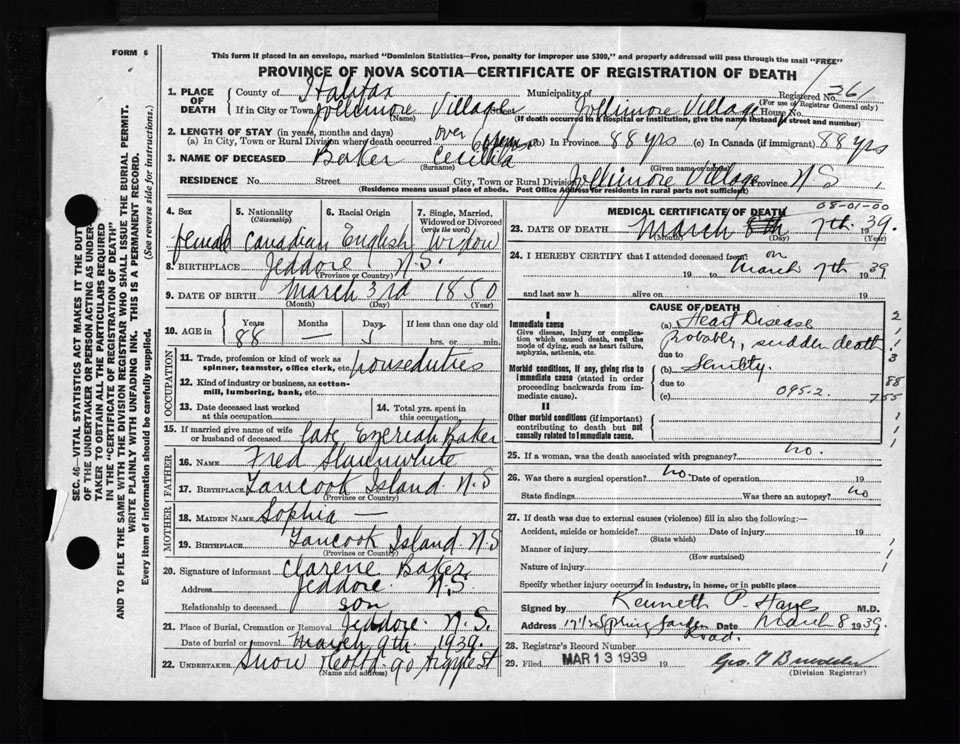 FORM 6
This form if placed in an envelope, marked "Dominion Statistics—Free, penalty for improper use $300," and properly addressed will pass through the mail "FREE"
PROVINCE OF NOVA SCOTIA—CERTIFICATE OF REGISTRATION OF DEATH
Registered No. 261
(For use of Registrar General only)
1. PLACE OF DEATH
County of Halifax Municipality of
If in City or Town Jollimore Village Street Jollimore Village House No.
(Name) (If death occurred in a Hospital or Institution, give the name instead of street and number)
2. LENGTH OF STAY (in years, months and days)
(a) In City, Town or Rural Division where death occurred over (b) In Province 88 yrs (c) In Canada (if immigrant) 88 yrs
3. NAME OF DECEASED Baker Cecilia
(Surname) (Given name or names)
RESIDENCE No. Street City, Town or Rural Division Jollimore Village Province N S
(Residence means usual place of abode. Post Office Address for residents in rural parts not sufficient)
4. Sex
female
5. Nationality
(Citizenship)
Canadian
6. Racial Origin
English
7. Single, Married, Widowed or Divorced
(write the word)
Widow
8. BIRTHPLACE Jeddore N.S.
(Province or Country)
9. DATE OF BIRTH March 3rd 1850
(Month) (Day) (Year)
10. AGE in
Years Months Days If less than one day old
88 — 5 hrs. or min.
OCCUPATION
11. Trade, profession or kind of work as spinner, teamster, office clerk, etc. houseduties
12. Kind of industry or business, as cotton-mill, lumbering, bank, etc.
13. Date deceased last worked at this occupation
14. Total yrs. spent in this occupation
15. If married give name of wife or husband of deceased late Ezeriah Baker
FATHER
16. NAME Fred Slaunwhite
17. BIRTHPLACE Tancook Island N.S
(Province or Country)
MOTHER
18. MAIDEN NAME Sophia —
19. BIRTHPLACE Tancook Island N.S
(Province or Country)
20. Signature of informant Clarene Baker
Address Jeddore N.S.
Relationship to deceased son
21. Place of Burial, Cremation or Removal Jeddore N.S.
Date of burial or removal March 9th 1939.
22. UNDERTAKER Snow 90 Argyle St
(Name and address)
MEDICAL CERTIFICATE OF DEATH
08-01-00
23. DATE OF DEATH March 7th. 1939.
(Month) (Day) (Year)
24. I HEREBY CERTIFY that I attended deceased from: on
19 to March 7th 1939
and last saw h alive on 19
CAUSE OF DEATH
I
Immediate cause
Give disease, injury or complication which caused death, not the mode of dying, such as heart failure, asphyxia, asthenia, etc.
(a) Heart Disease
probably, sudden death
due to
Morbid conditions, if any, giving rise to immediate cause (stated in order proceeding backwards from immediate cause).
(b) Senility.
due to 095-2
(c)
II
Other morbid conditions (if important) contributing to death but not causally related to immediate cause.
2
1
1
3
88
755
1
1
1
25. If a woman, was the death associated with pregnancy? no.
26. Was there a surgical operation? no. Date of operation 19
State findings Was there an autopsy? no
27. If death was due to external causes (violence) fill in also the following:—
Accident, suicide or homicide? Date of injury 19
(State which)
Manner of injury
(How sustained)
Nature of injury
Specify whether injury occurred in industry, in home, or in public place
Signed by Kenneth P. Hayes M.D.
Address Spring Garden Road. Date March 8 1939.
28. Registrar's Record Number
29. Filed MAR 13 1939 19
(Division Registrar)
SEC. 46—VITAL STATISTICS ACT MAKES IT THE DUTY
OF THE UNDERTAKER OR PERSON ACTING AS UNDER-
TAKER TO OBTAIN ALL THE PARTICULARS REQUIRED
IN THE "CERTIFICATE OF REGISTRATION OF DEATH"
AND TO FILE THE SAME WITH THE DIVISION REGISTRAR WHO SHALL ISSUE THE BURIAL PERMIT.
WRITE PLAINLY WITH UNFADING INK. THIS IS A PERMANENT RECORD.
Every item of information should be carefully supplied. (See reverse side for instructions.)